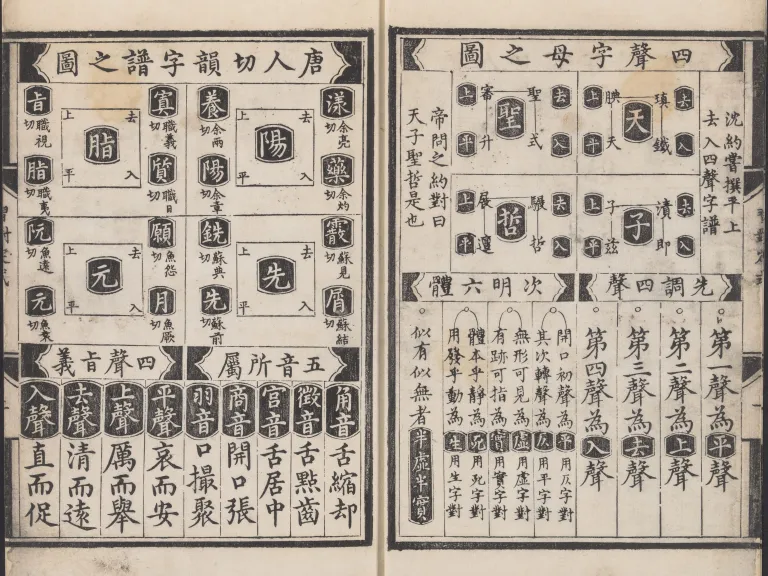 四聲字母之圖
沈約嘗撰平上
去入四聲字譜
天
去 瑱
入 鐵
上 腆
平 天
聖
去 聖
入 式
上 審
平 升
子
去 漬
入 即
上 子
平 兹
哲
去
入 哲
上 展
平 邅
帝問之約對曰
天子聖哲是也
先調四聲
第一聲為平聲
第二聲為上聲
第三聲為去聲
第四聲為入聲
次明六體
開口初聲為平用仄字對
其次轉聲為仄用平字對
無形可見為虛用虛字對
有跡可指為實用實字對
體本乎靜為死用死字對
用發乎動為生用生字對
似有似無者半虛半實
唐人切韻字譜之圖
陽
去 上 入 平
漾 余亮切
藥 余灼切
養 余兩切
陽 余章切
脂
去 上 入 平
寘 職義切
質 職日切
旨 職視切
脂 職夷切
先
去 上 入 平
霰 蘇見切
屑 蘇結切
銑 蘇典切
先 蘇前切
元
去 上 入 平
願 魚怨切
月 魚厥切
阮 魚遠切
元 魚袁切
五音所屬
角音舌縮却
徵音舌點齒
宮音舌居中
商音開口張
羽音口撮聚
四聲旨義
平聲哀而安
上聲厲而舉
去聲清而遠
入聲直而促